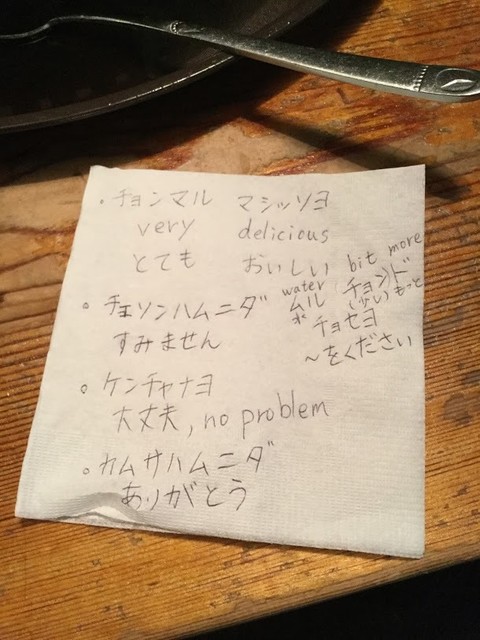 ・チョンマル マシッソヨ
very delicious
とても おいしい
bit more
water チョンド
ムル (少し)もっと
チョセヨ
〜をください
。チェソンハムニダ
すみません
。ケンチャナヨ
大丈夫, no problem
。カムサハムニダ
ありがとう